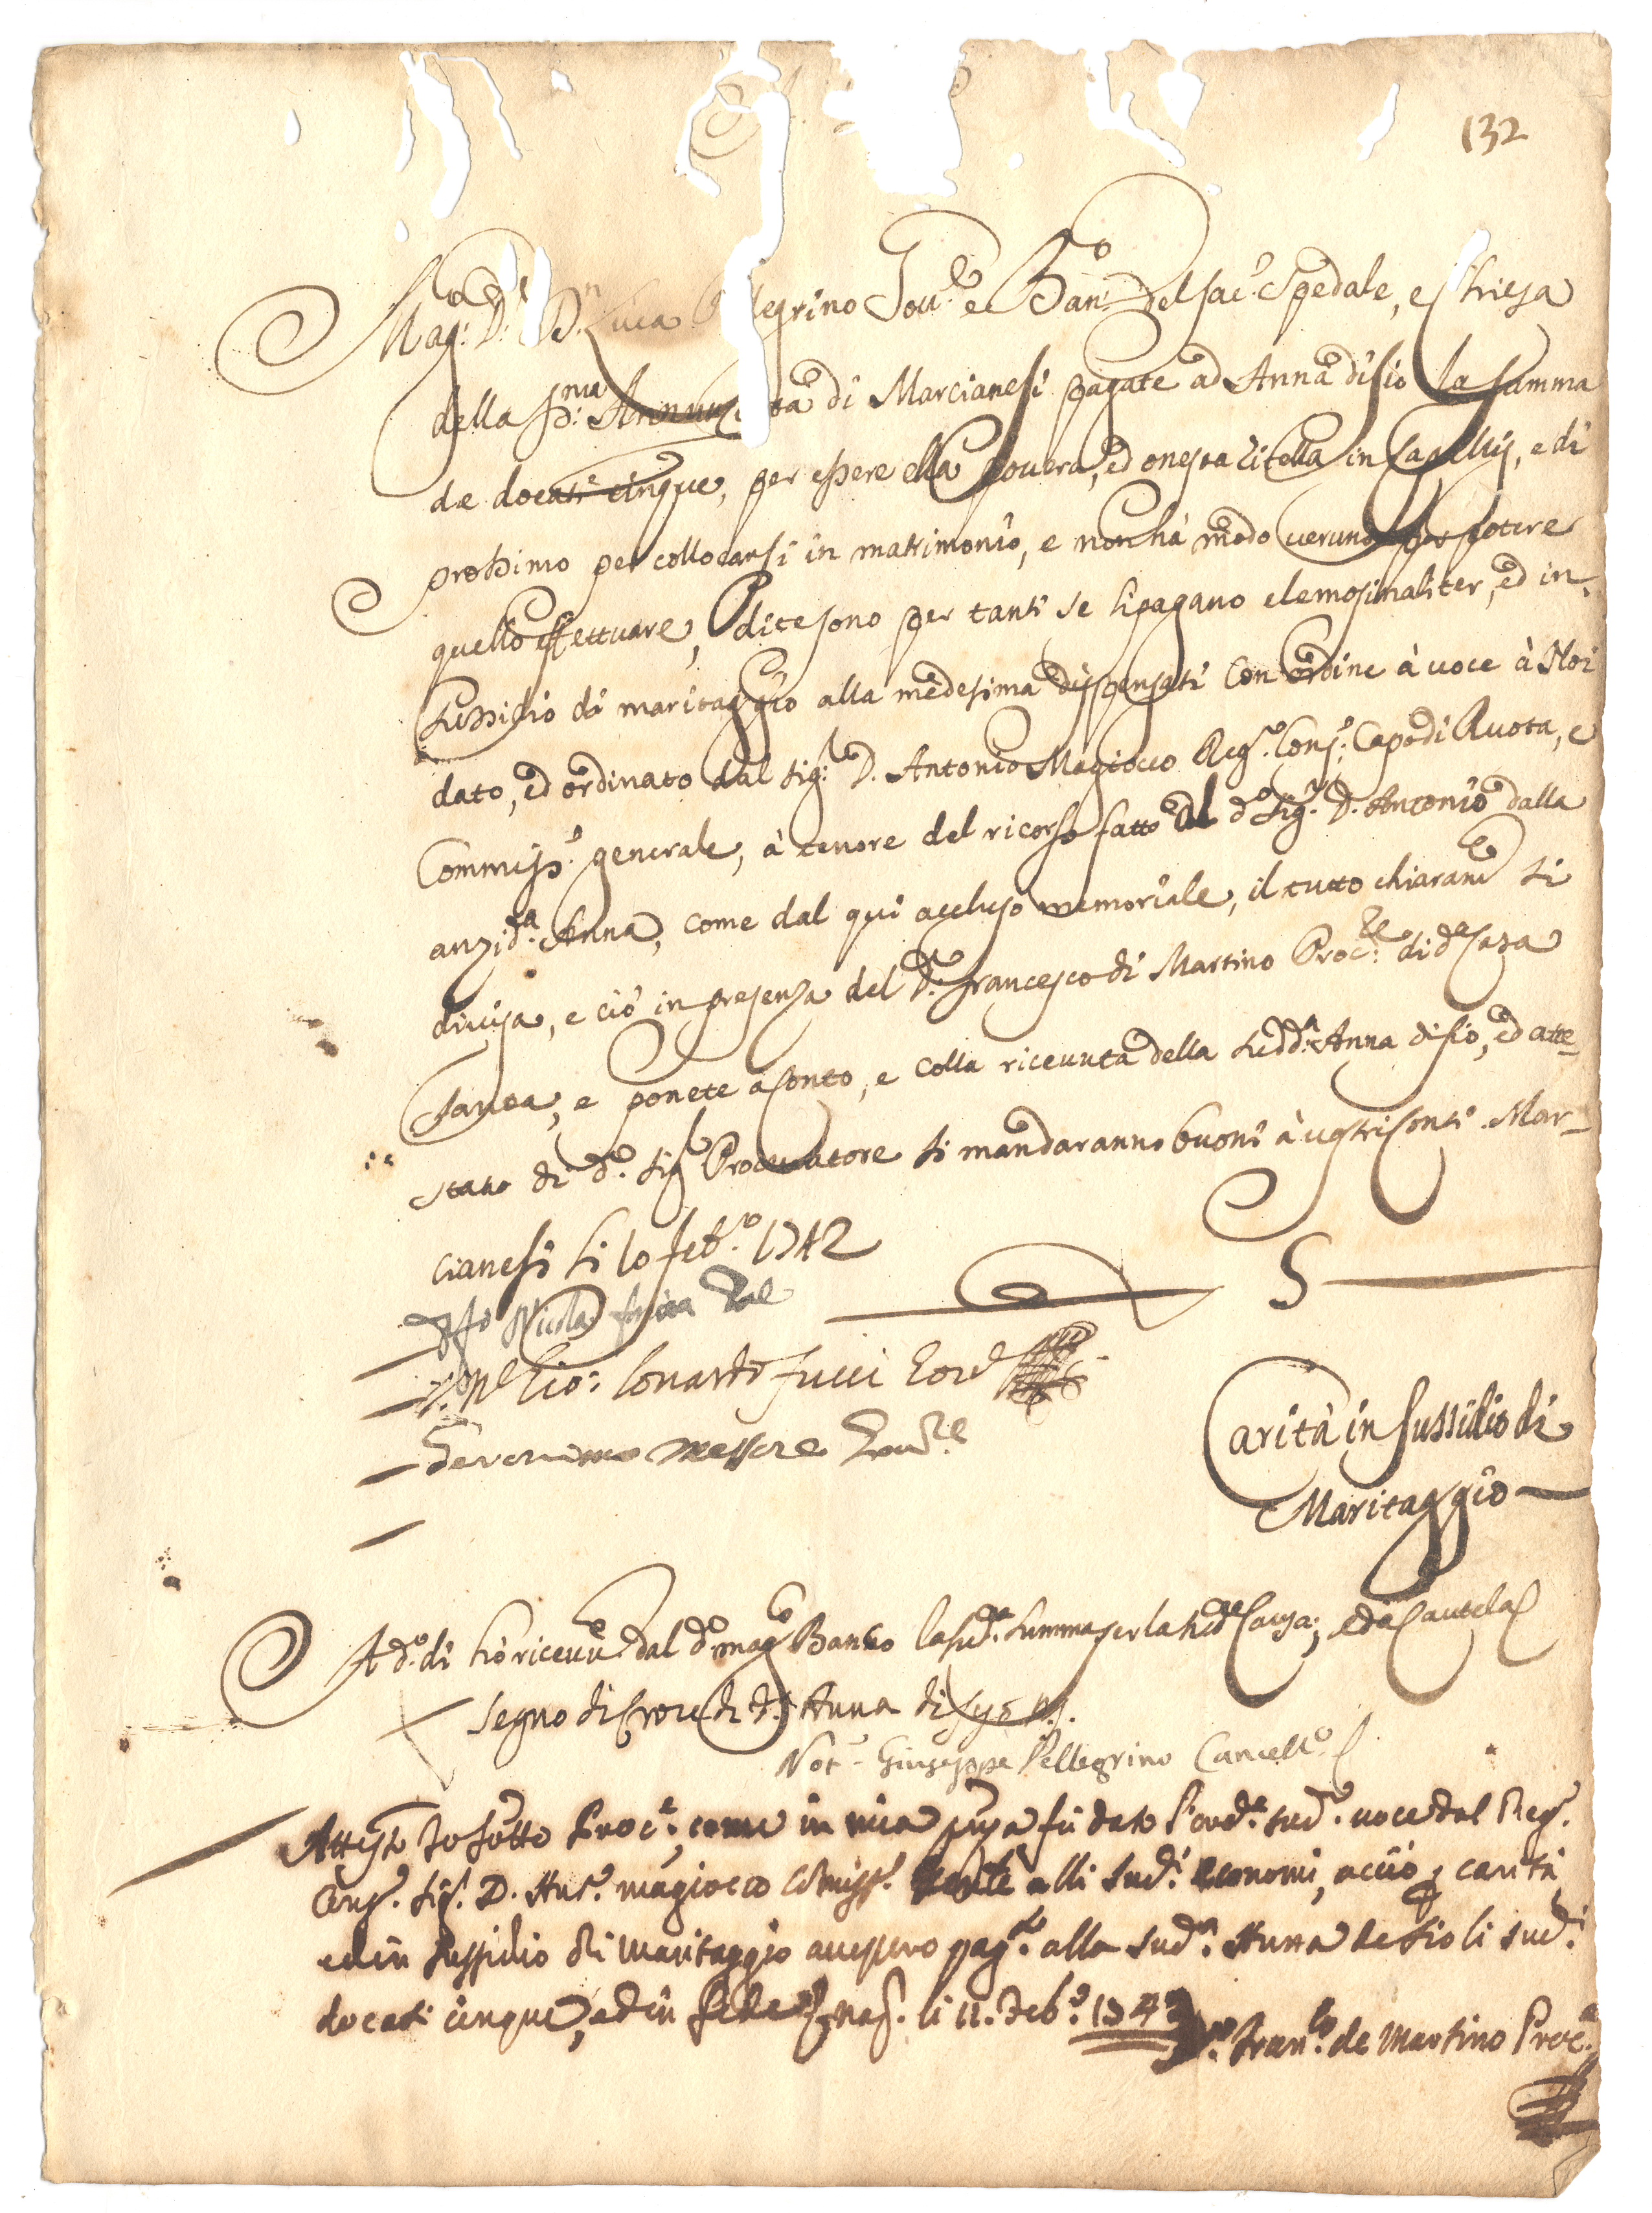 132
Mag: D. D.n Luca legrino Gov.re e Ban: del sac: Spedale, e Chiesa
della S: di Marcianesi pagate ad Anna di Sio la summa
de docati cinque, per essere ella povera, ed onesta zitella in Capillis, e di
prossimo per collocarsi in matrimonio, e non hà modo veruno per potere
quello effettuare, e dite sono per tanti se li pagano elemosinaliter, ed in
sussidio di maritaggio alla medesima dispensati con ordine à voce à Noi
dato, ed ordinato dal Sig: D. Antonio Magiocco Reg.o Cons: Capo di Ruota, e
Commiss: generale, à tenore del ricorso fatto al d.o Sig.r D. Antonio dalla
anzid.a Anna, come dal qui accluso memoriale, il tutto chiaram.e si
divisa, e ciò in presenza del D.r Francesco di Martino Proc.re di d.a Casa
Santa, e ponete à conto, e colla ricevuta della sudd.a Anna di Sio, ed atte=
stato di d.o Sig.r Procuratore si mandaranno buoni à vostri conti. Mar=
cianesi li 10 feb.ro 1742
Nicola
5
Gio: Lonardo Fucci
Geronimo Messore
Carità in sussidio di
Maritaggio
A d.o dì hò ricevu.o dal d.o mag.co Banco la sud.a summa per la sud.a Causa, ed à Cautela
Segno di Croce di d.a Anna di Syo
Not.r Giuseppe Pellegrino Cancell.o
Attesto Io sotto Proc.re, come in mia pnza fù dato l'ord.e sud.o voce dal Reg.o
Cons.o Sig.r D. Ant.o Magiocco Comiss.o alli sud.i Economi, acciò p carità
ed in sussidio di maritaggio avessero pag.to alla sud.a Anna de Sio li sud.i
docati cinque, ed in fede Nap. li 11. Feb.o 1742
D.r Fran.co de Martino Proc.re